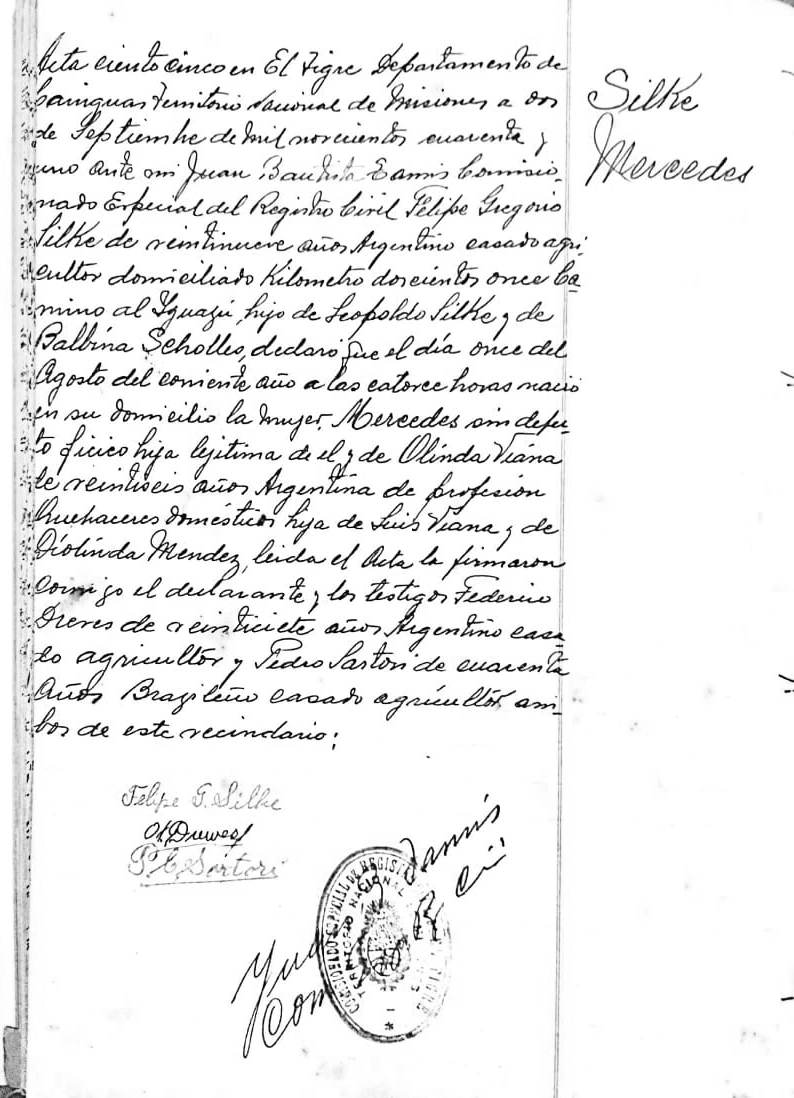 Acta ciento cinco en El Tigre Departamento de
Cainguas Territorio Nacional de Misiones a dos
de Septiembre de mil novecientos cuarenta y
uno ante mi Juan Bautista Eamis Comisio-
nado Especial del Registro Civil Felipe Gregorio
Silke de veintinueve años Argentino casado agri-
cultor domiciliado Kilometro doscientos once Ca-
mino al Yguazú, hijo de Leopoldo Silke y de
Balbina Scholles, declaró que el día once del
Agosto del corriente año a las catorce horas nació
en su domicilio la mujer, Mercedes sin defec-
to ficico hija lejitima de el y de Olinda Viana
de veintiseis años Argentina de profesión
Quehaceres domésticos hija de Luis Viana y de
Diolinda Mendez, leida el Acta la firmaron
comigo el declarante y los testigos Federico
Dreves de veinticiete años Argentino casa-
do agricultor y Pedro Sartori de cuarenta
Años Brazileño casado agricultor am-
bos de este vecindario;
Silke
Mercedes
Felipe G. Silke
Drewes
P. C. Sartori
COMISIONADO ESPECIAL DE REGISTRO
TERRITORIO NACIONAL